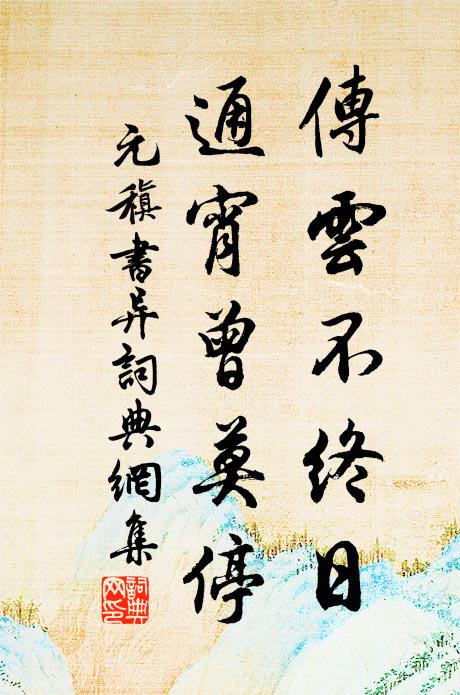 傳雲不終日
通宵曾莫停
元稹書并詞典網集
詞典